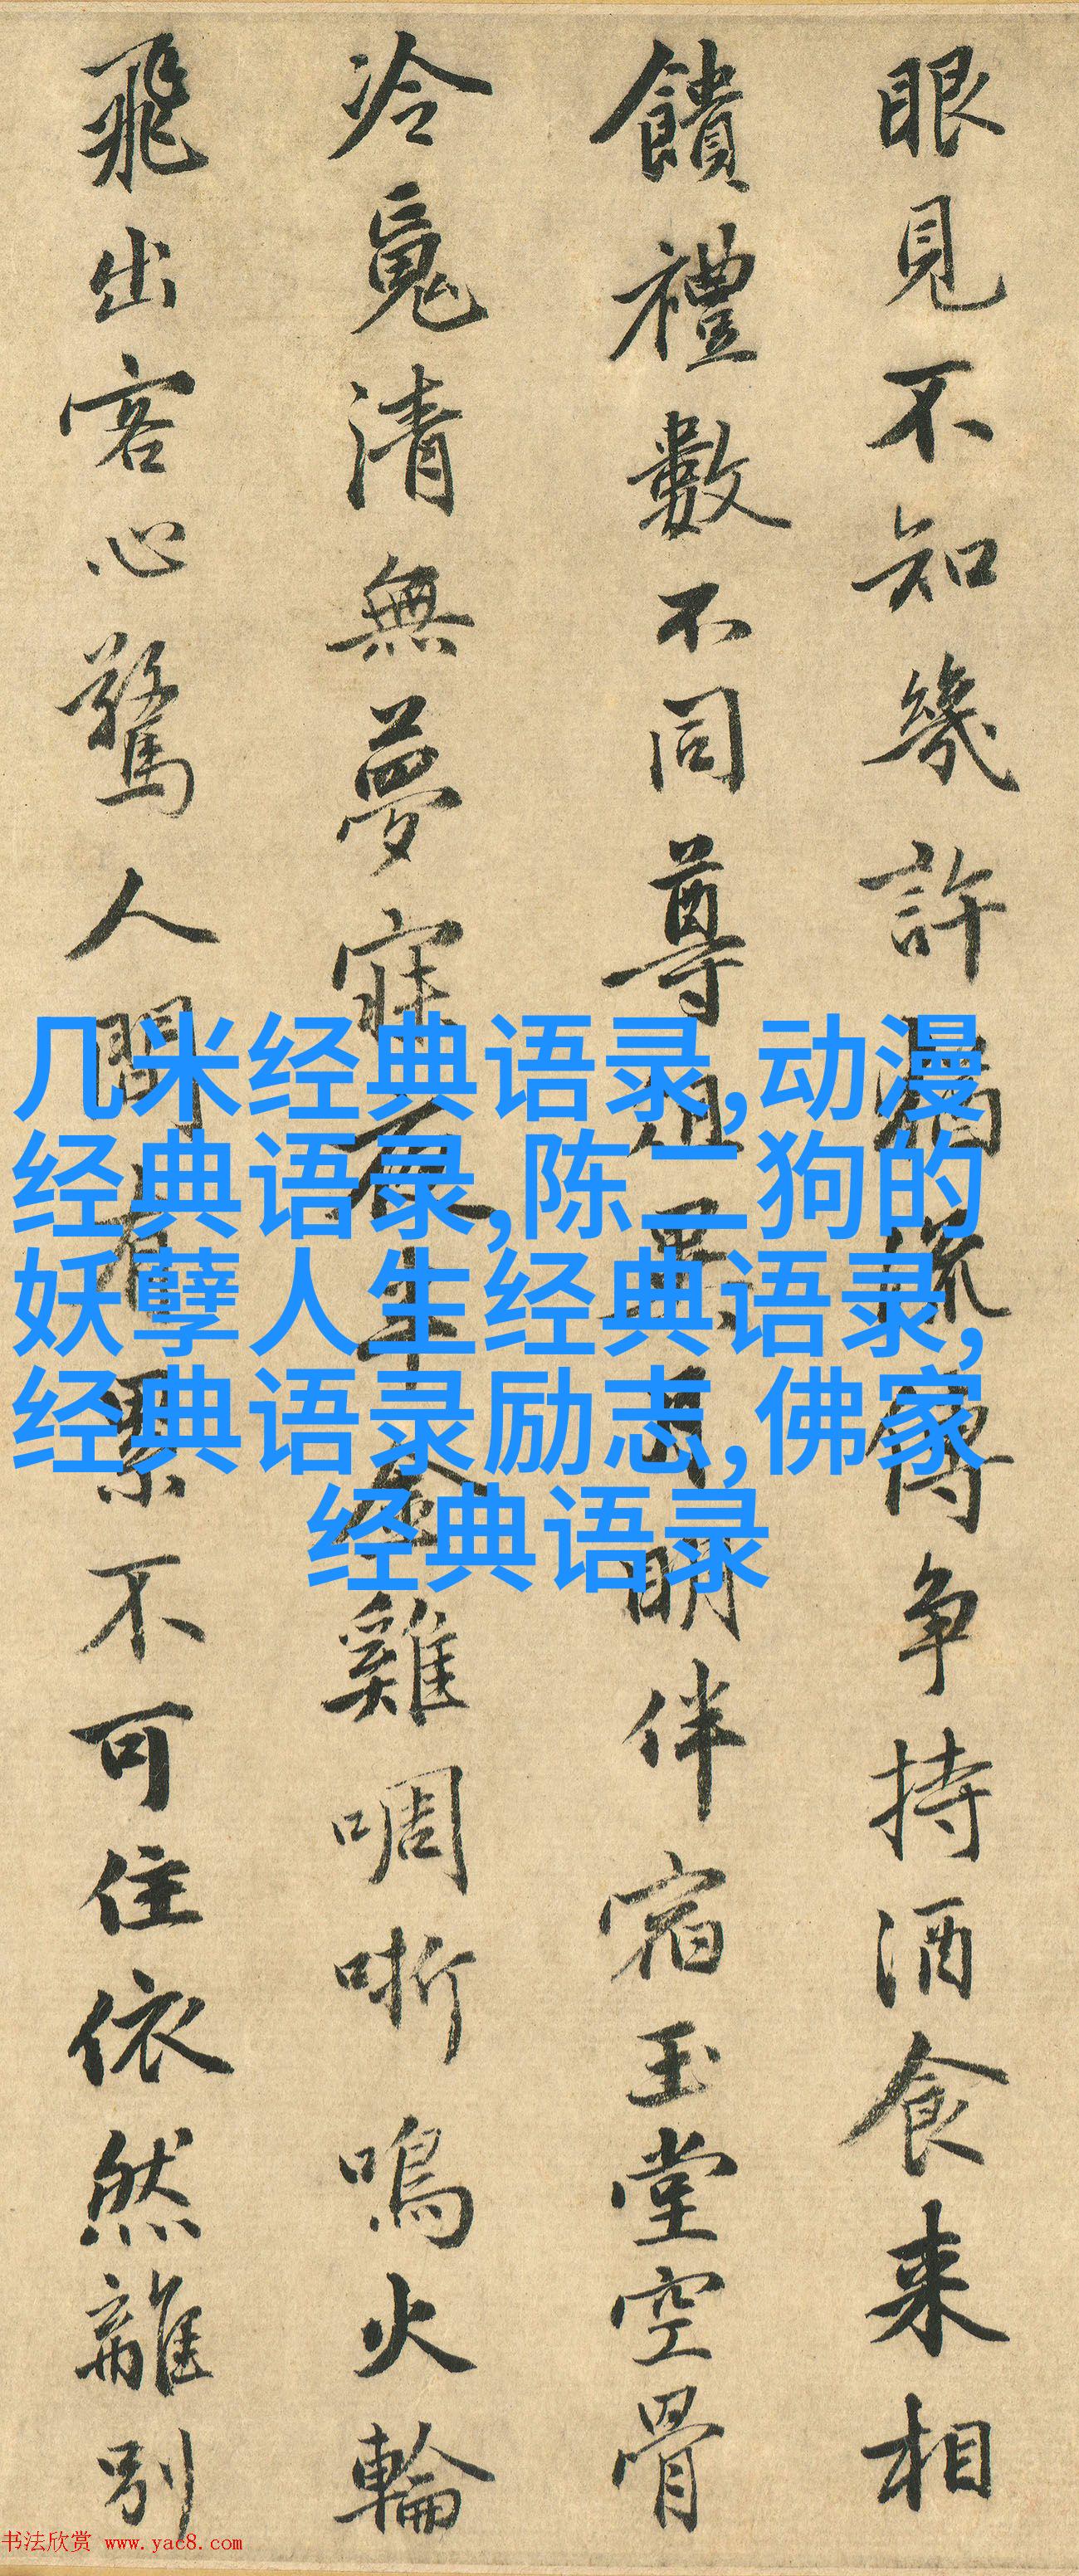 眼見不知幾許猶流傳争持酒食来相
饋禮數不同尊俎異月明伴宿玉堂空骨
冷䰟清無夢寐夜半金雞啁哳鳴火輪
飛出客心驚人間有累不可住依然離別
几米经典语录,动漫
经典语录,陈二狗的
妖孽人生经典语录,
经典语录励志,佛家
经典语录
书法欣赏 www.yac8.com